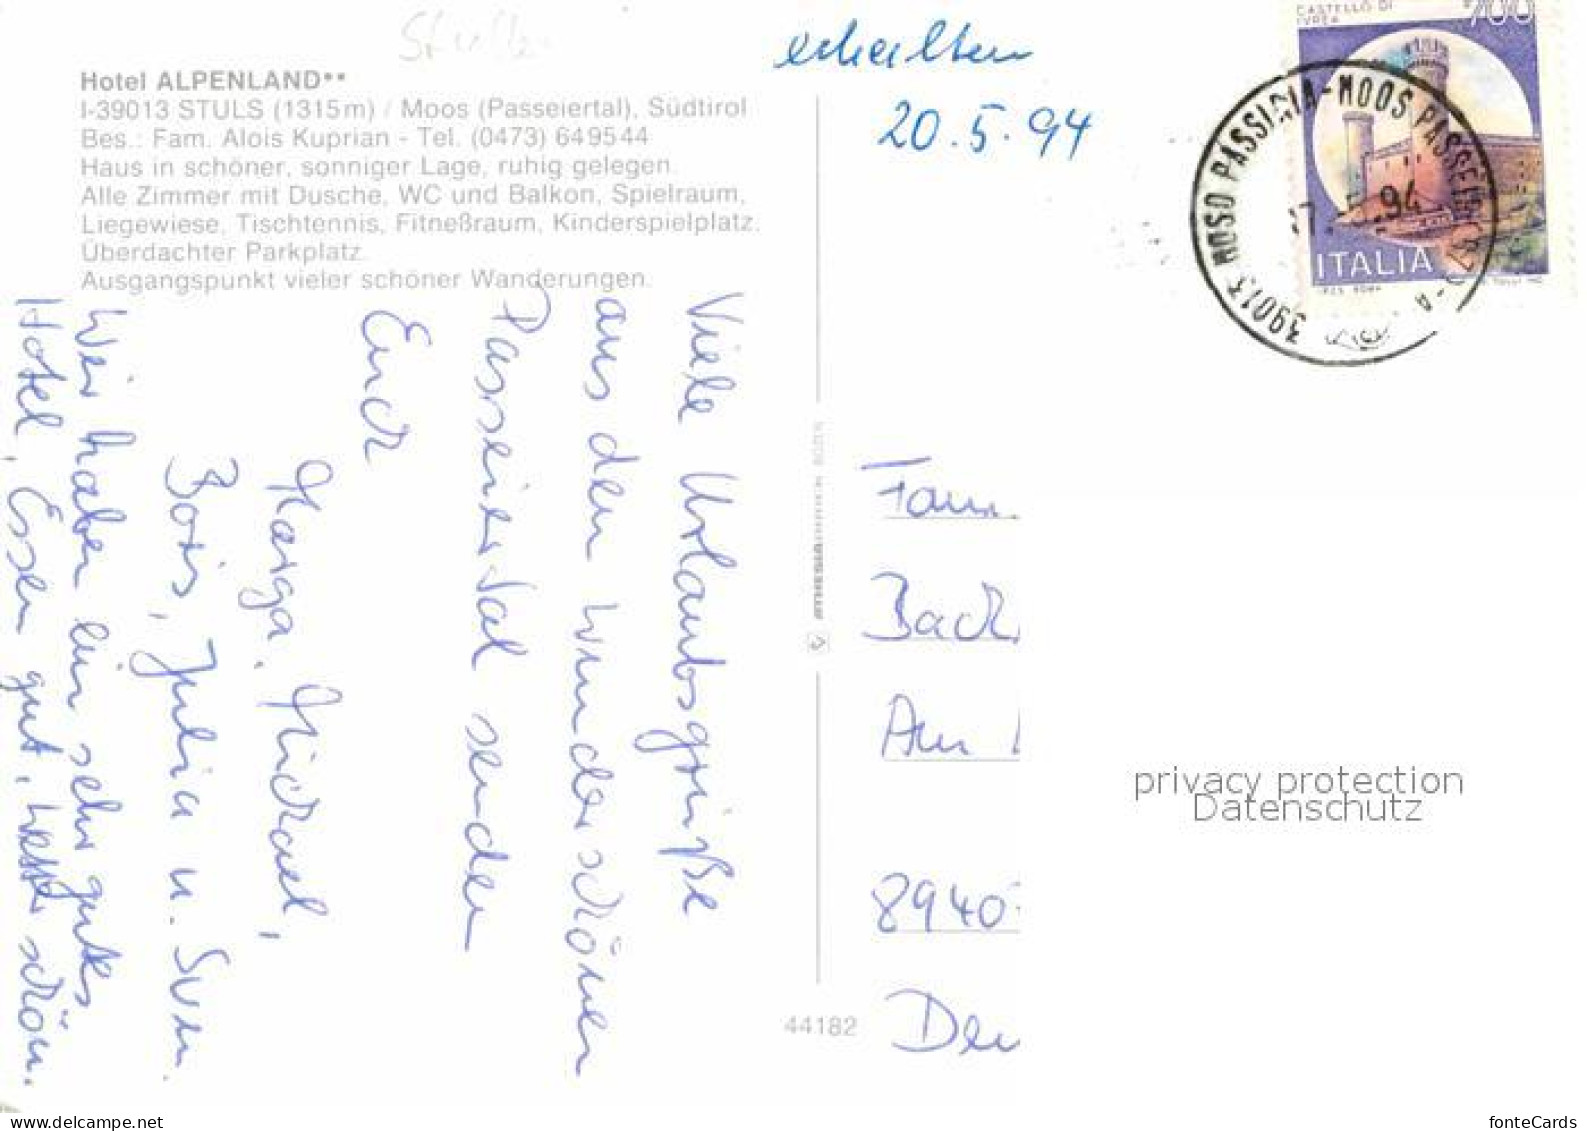 Stuls
Hotel ALPENLAND**
I-39013 STULS (1315m) / Moos (Passeiertal), Südtirol
Bes.: Fam. Alois Kuprian - Tel. (0473) 649544
Haus in schöner, sonniger Lage, ruhig gelegen.
Alle Zimmer mit Dusche, WC und Balkon, Spielraum,
Liegewiese, Tischtennis, Fitneßraum, Kinderspielplatz.
Überdachter Parkplatz.
Ausgangspunkt vieler schöner Wanderungen.
Viele Urlaubsgrüße
aus dem wunderschönen
Passeiertal senden
Euch
Marga, Michael,
Boris, Julia u. Sven.
Wir haben ein sehr gutes
Hotel, Essen gut, Wetter schön.
erhalten
20.5.94
CASTELLO DI
IVREA
700
ITALIA
39013 MOSO PASSIRIA-MOOS PASSEIER
94
ATHESIADRUCK BOZEN
44182
Fam.
Bach
Am
8940
Deu
privacy protection
Datenschutz
www.delcampe.net
fonteCards